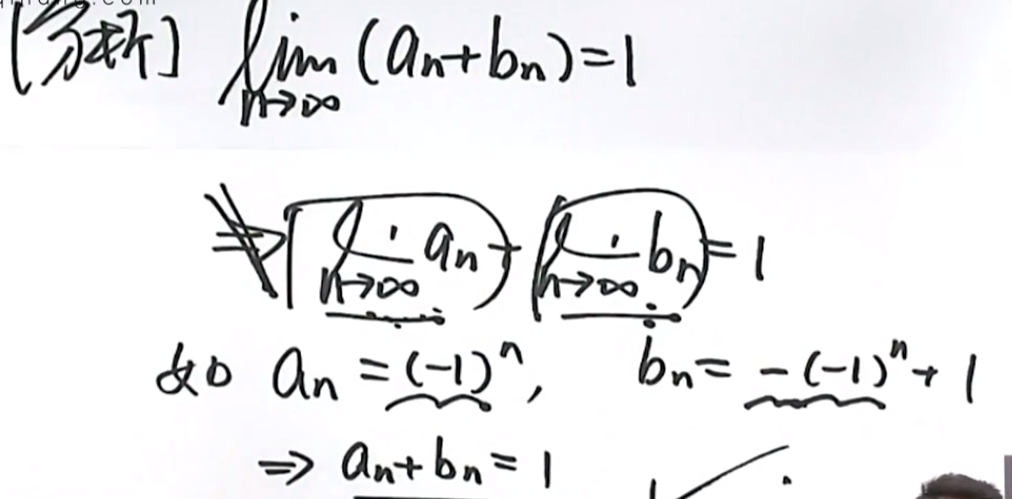 [分析] lim (an+bn)=1
n→∞
⇏ lim an + lim bn = 1
n→∞ n→∞
如 an = (-1)ⁿ, bn = -(-1)ⁿ+1
⇒ an+bn = 1